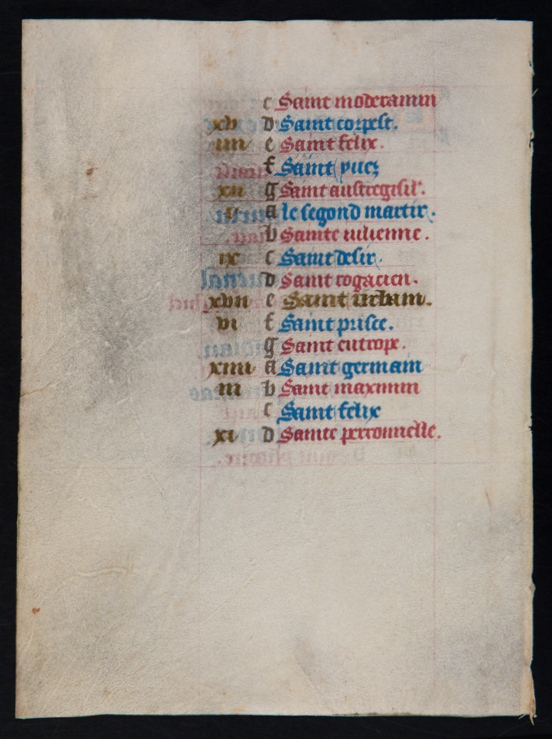 c Saint moderamin
xv d Saint corpest.
iiii e Saint felix.
f Saint yues
xii g Saint austregisil'.
i a le segond martir.
b Sainte iulienne.
ix c Saint desir.
d Saint rogacien.
xvii e Saint urbain.
vi f Saint prisce.
g Saint eutrope.
xiiii a Saint germain
iii b Saint maximin
c Saint felix
xi d Sainte perronnelle.